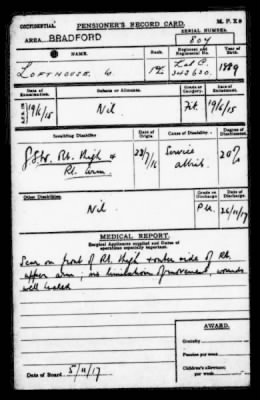 CONFIDENTIAL PENSIONER'S RECORD CARD. M.P.X 8
AREA BRADFORD SERIAL NUMBER 804
NAME. Rank. Regiment and Regimental No. Year of Birth
LOFTHOUSE, G Pte Lab C. 1889
Date of Examination. Defects or Ailments. Grade or Category. Date
19/6/15 Nil Fit 19/6/15
Resulting Disabilities Date of Origin Cause of Disability. Degree of Disablement.
GSW. Rt. Thigh & 23/7/16 Service 20%
Rt. arm attrib.
Other Disabilities. Grade on Discharge Date of Discharge
Nil 26/11/17
MEDICAL REPORT.
Surgical Appliances supplied and Dates of operations especially important.
Scar on front of Rt. Thigh & outer side of Rt.
upper arm; no limitation of movement, wounds
well healed
AWARD.
Gratuity
Pension per week
Children's allowance, per week
Date of Board 5/11/17